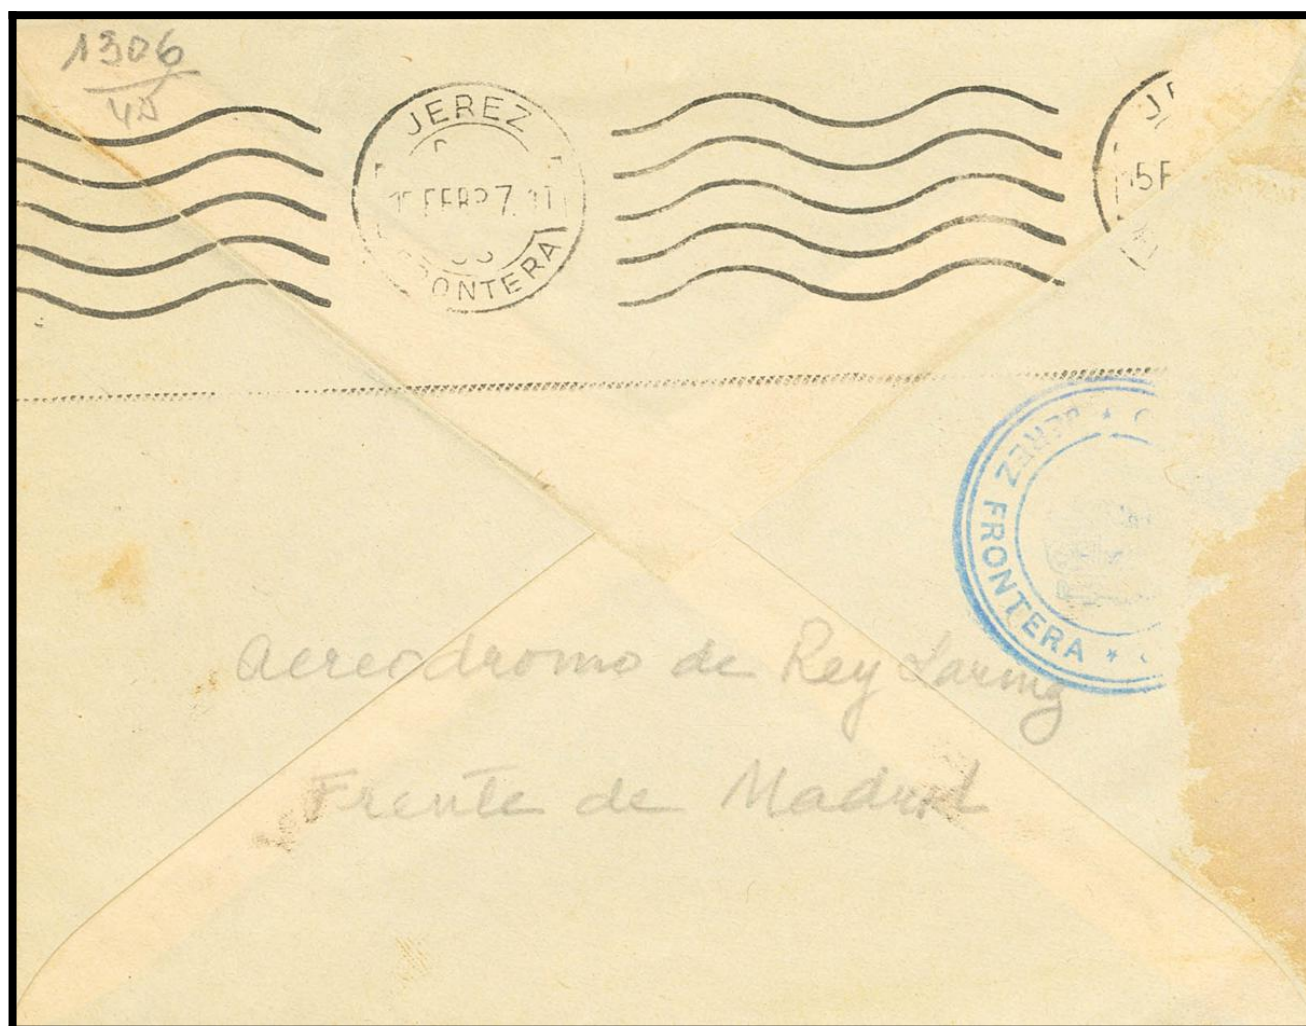 1306
40
JEREZ
FEB 37
FRONTERA
5F
JEREZ FRONTERA
Aereodromo de Rey
Frente de Madrid